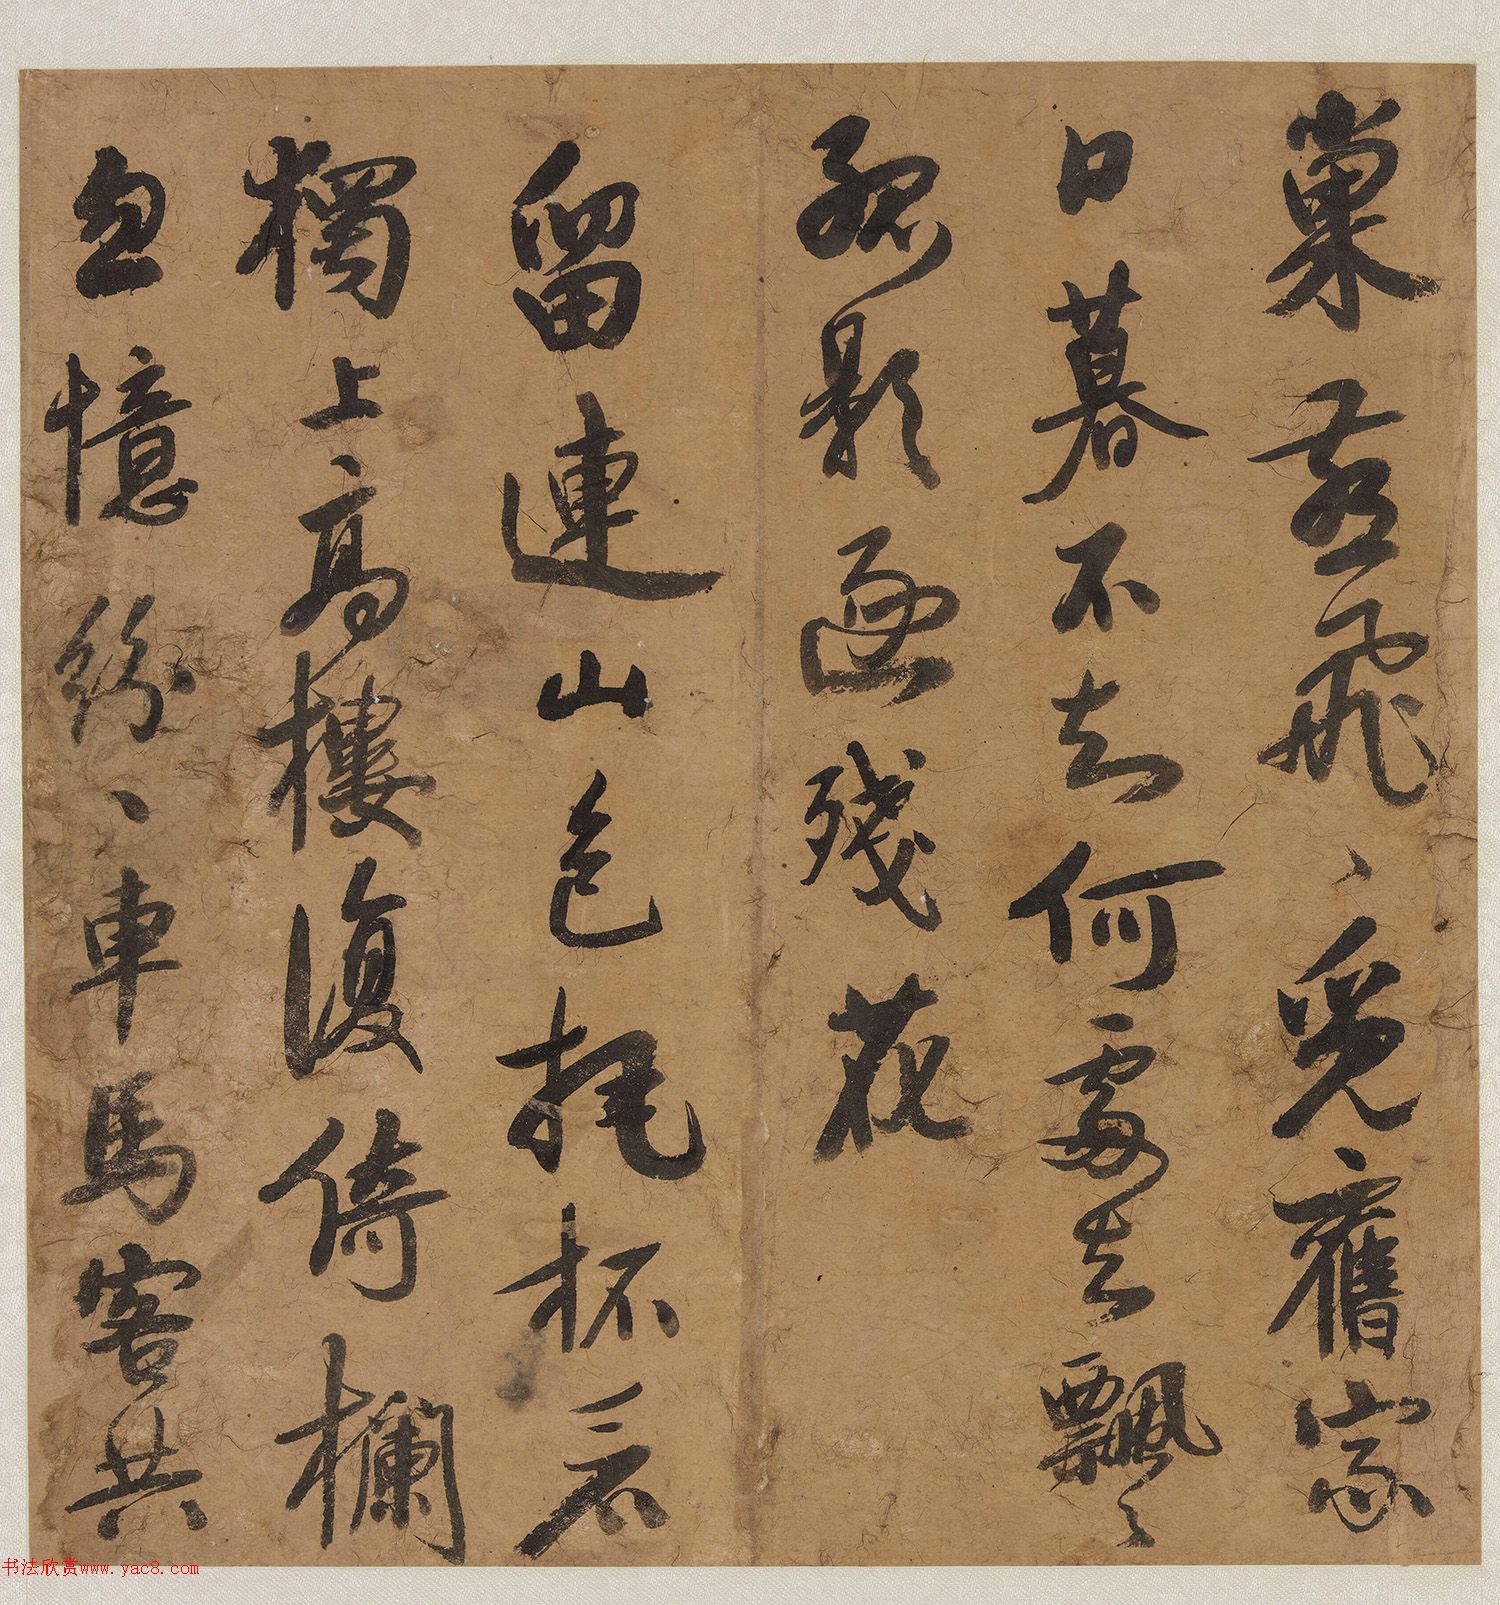 巢燕飛〻覓舊家
日暮不知何處去飄〻
孤影殘花
留連山色把杯看
獨上高樓復倚欄
忽憶紛〻車馬客共
书法欣赏www.yac8.com